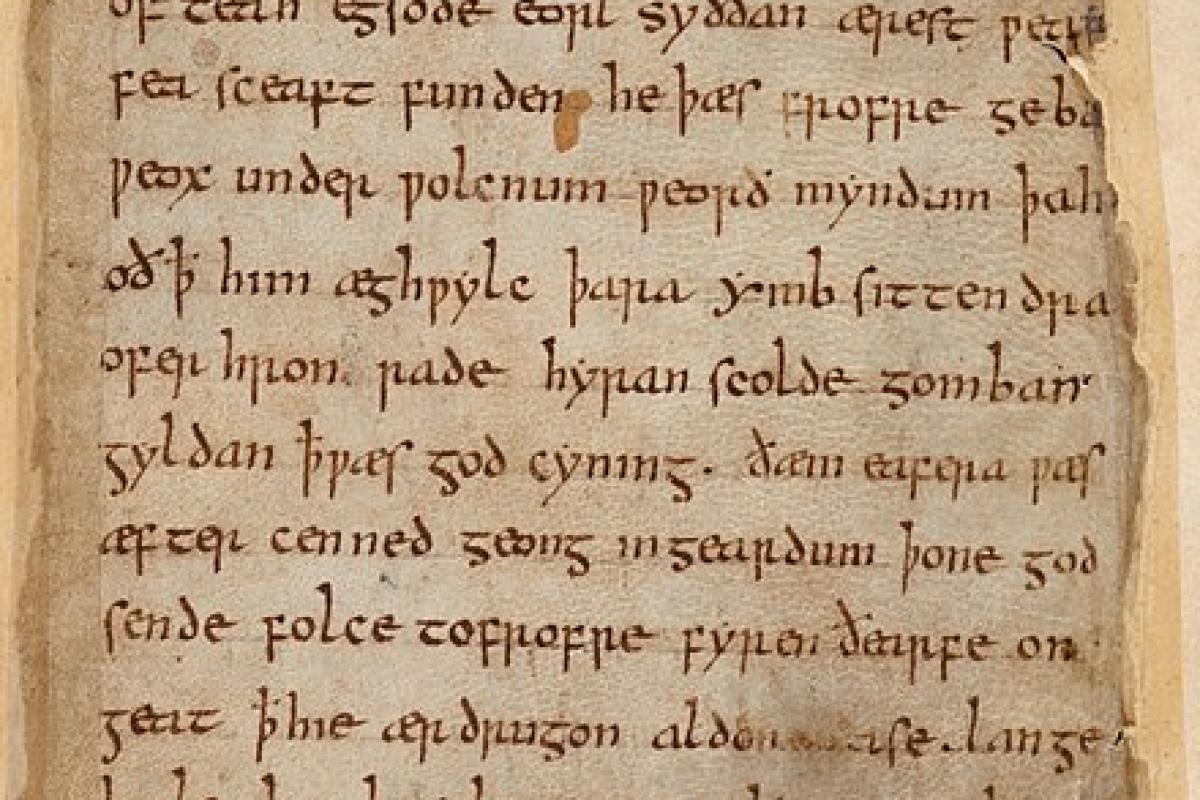 of teah egsode eorl syððan ærest ƿear
fea sceaft funden he þæs frofre geba
ƿeox under ƿolcnum ƿeorð myndum þah
oð ꝥ him æghƿylc þara ymb sittendra
ofer hron rade hyran scolde gomban
gyldan ꝥ ƿæs god cyning. ðæm eafera ƿæs
æfter cenned geong in geardum þone god
sende folce tofrofre fyren ðearfe on
geat ꝥ hie ær drugon aldor ase. lange